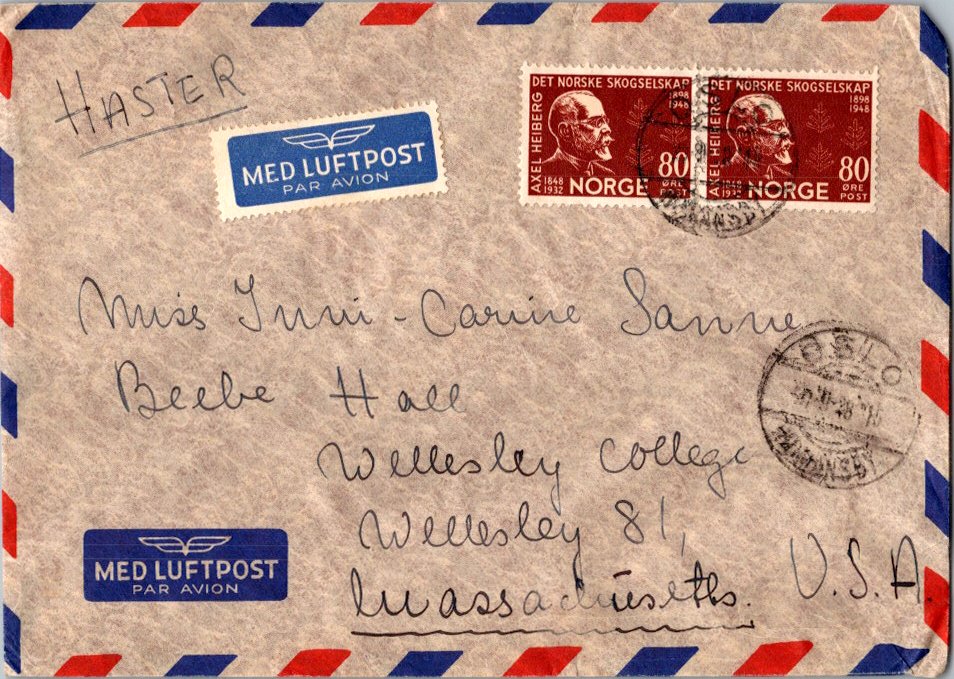 HASTER
MED LUFTPOST
PAR AVION
DET NORSKE SKOGSELSKAP
1898
1948
AXEL HEIBERG
80
ØRE
POST
1848
1932
NORGE
DET NORSKE SKOGSELSKAP
1898
1948
AXEL HEIBERG
80
ØRE
POST
1848
1932
NORGE
Miss Inni-Carine Sanne
Beebe Hall
Wellesley College
Wellesley 81,
Massachusetts. U.S.A.
OSLO
MED LUFTPOST
PAR AVION